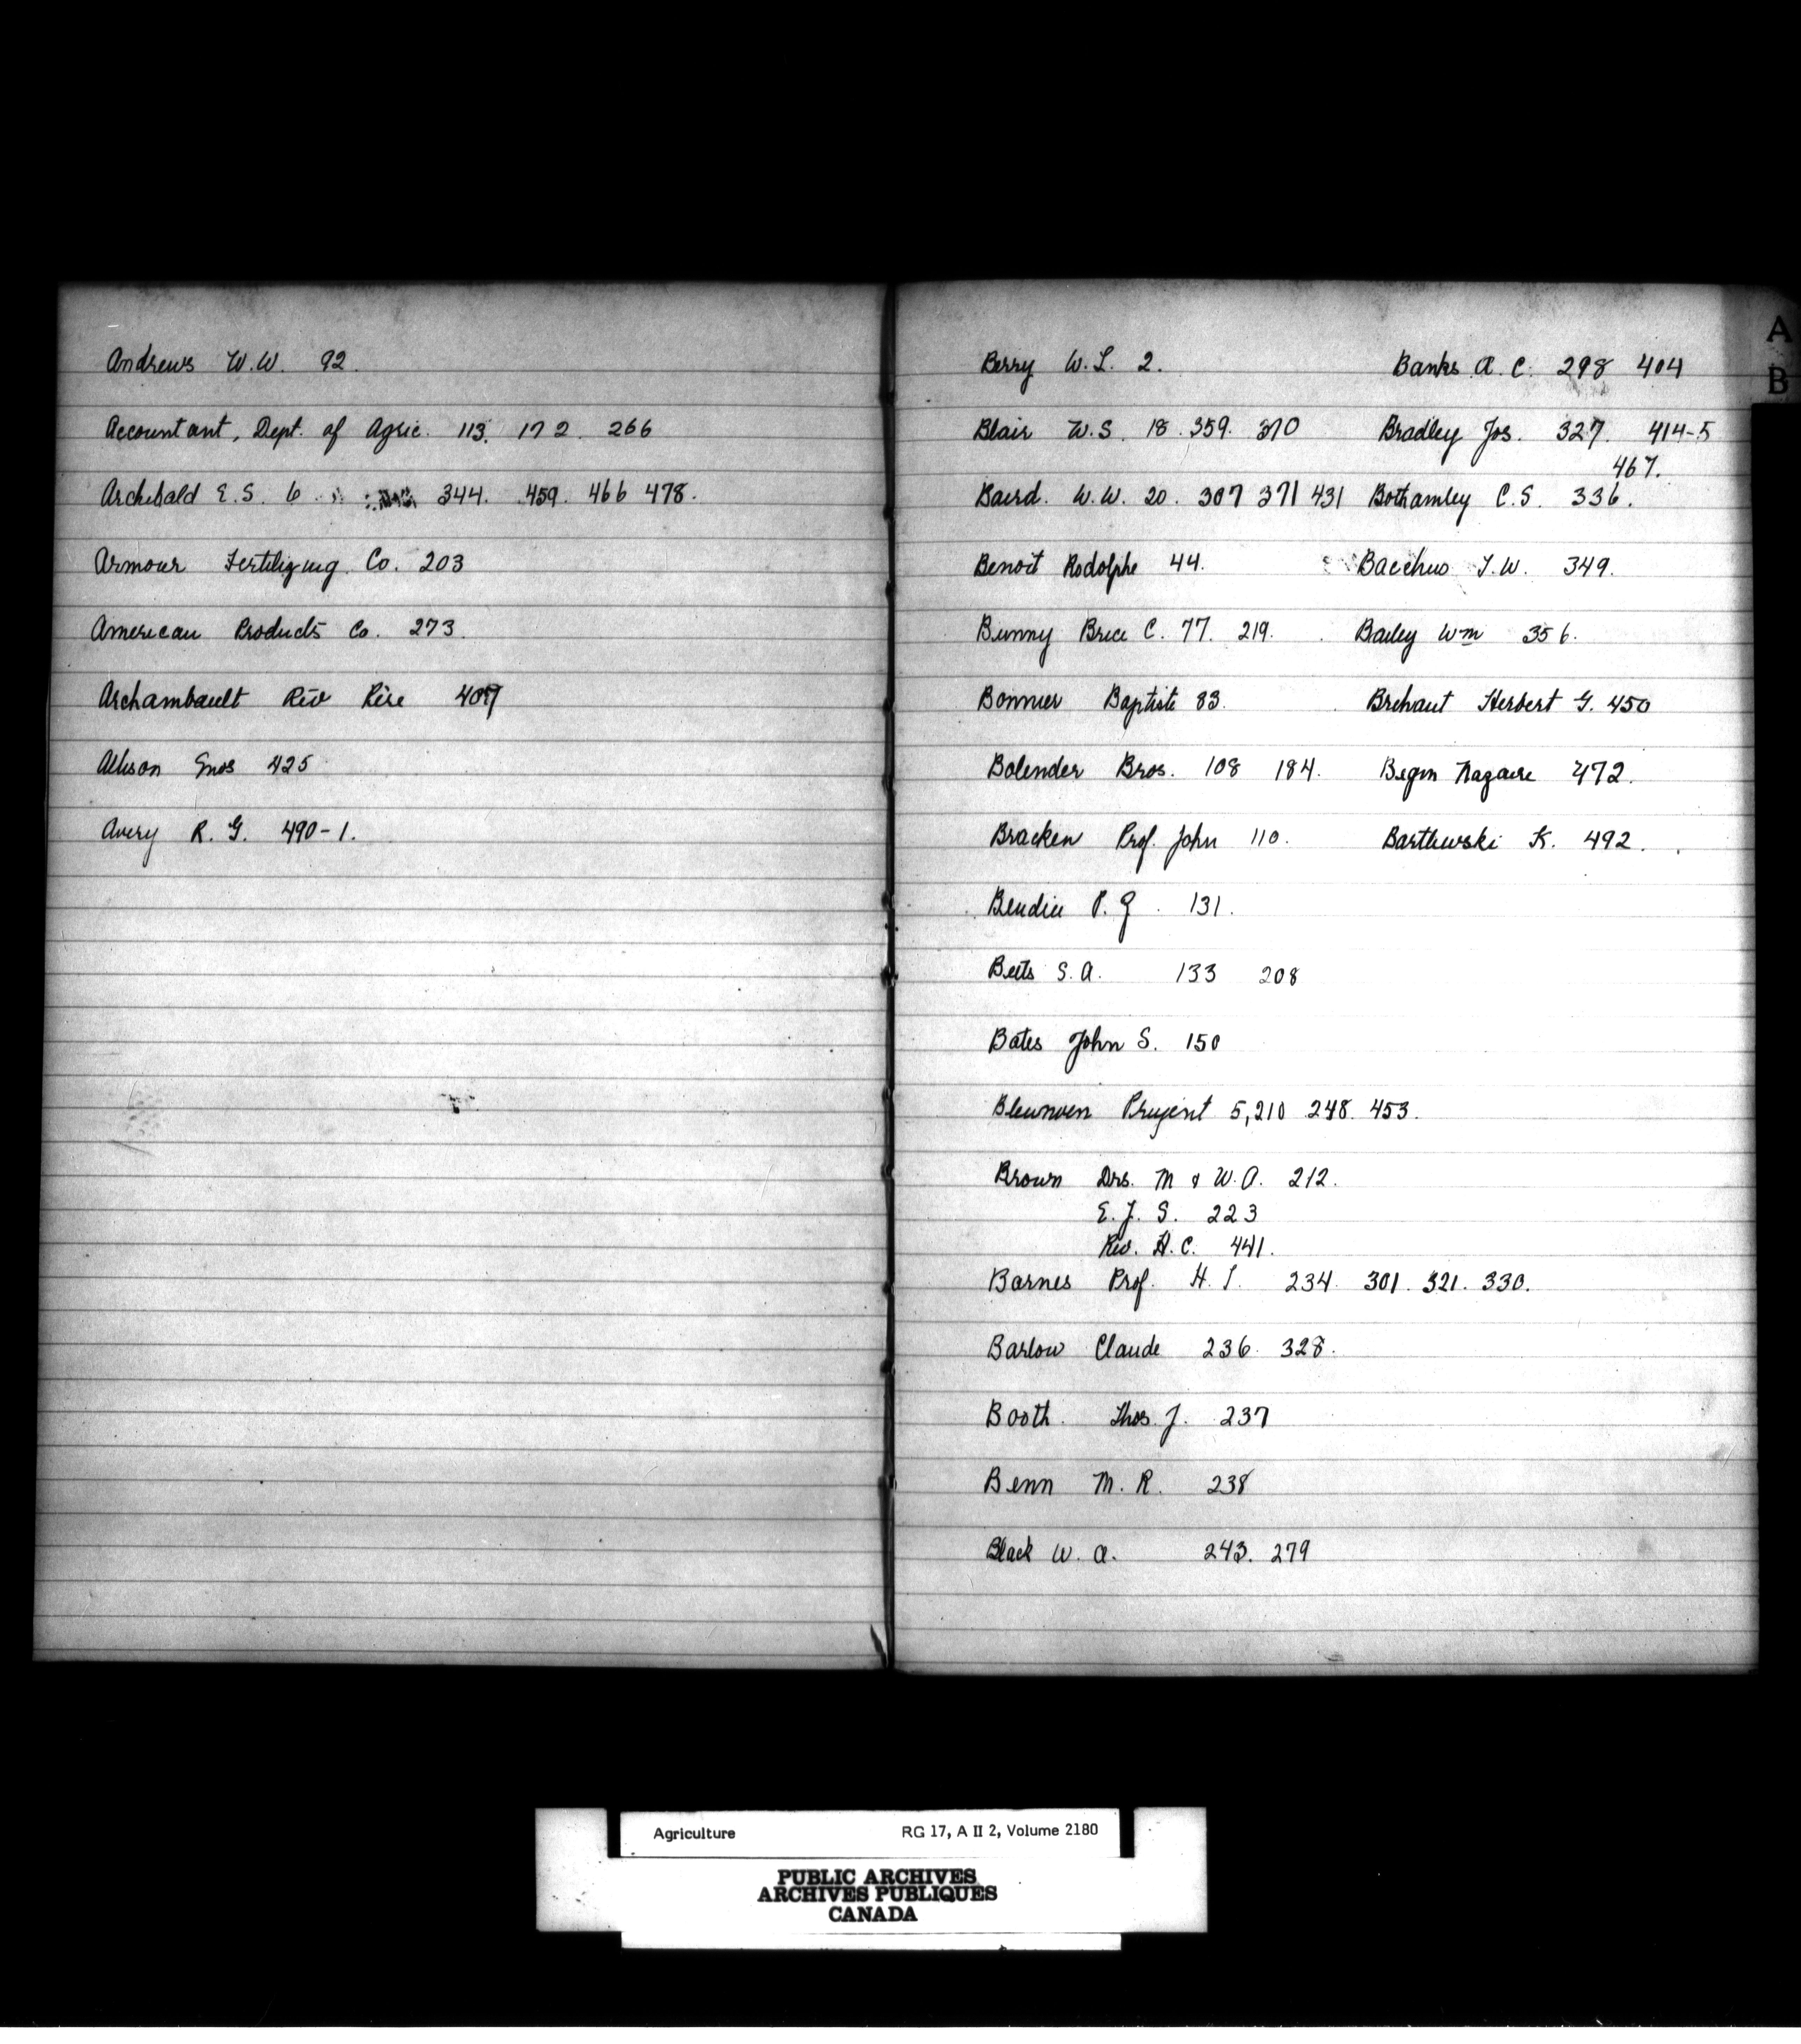 Andrews W.W. 92.
Accountant, Dept. of Agric. 113. 172. 266
Archibald E.S. 6 344. 459. 466 478.
Armour Fertilizing Co. 203
American Products Co. 273.
Archambault Rev Père 407
Allison Enos 425
Avery R. G. 490-1.
A
B
Berry W.L. 2.
Blair W.S. 18. 359. 370
Baird. W.W. 20. 307 371 431
Benoit Rodolphe 44.
Bunny Brice C. 77. 219.
Bonnier Baptiste 83.
Bolender Bros. 108 184.
Bracken Prof. John 110.
P. J. 131.
Betts S.A. 133 208
Bates John S. 150
Bleunven Prugent 5,210 248. 453.
Brown Drs. M & W.A. 212.
E. J. S. 223
Rev. H. C. 441.
Barnes Prof. H. T. 234. 301. 321. 330.
Barlow Claude 236. 328.
Booth. Thos. J. 237
Benn M. R. 238
Black W. A. 243. 279
Banks A. C. 298 404
Bradley Jos. 327. 414-5
467.
Bothamley C.S. 336.
Bacchus T.W. 349.
Bailey Wm 356.
Brehaut Herbert G. 450
Begin Nazaire 472.
Bartlewski K. 492.
Agriculture RG 17, A II 2, Volume 2180
PUBLIC ARCHIVES
ARCHIVES PUBLIQUES
CANADA